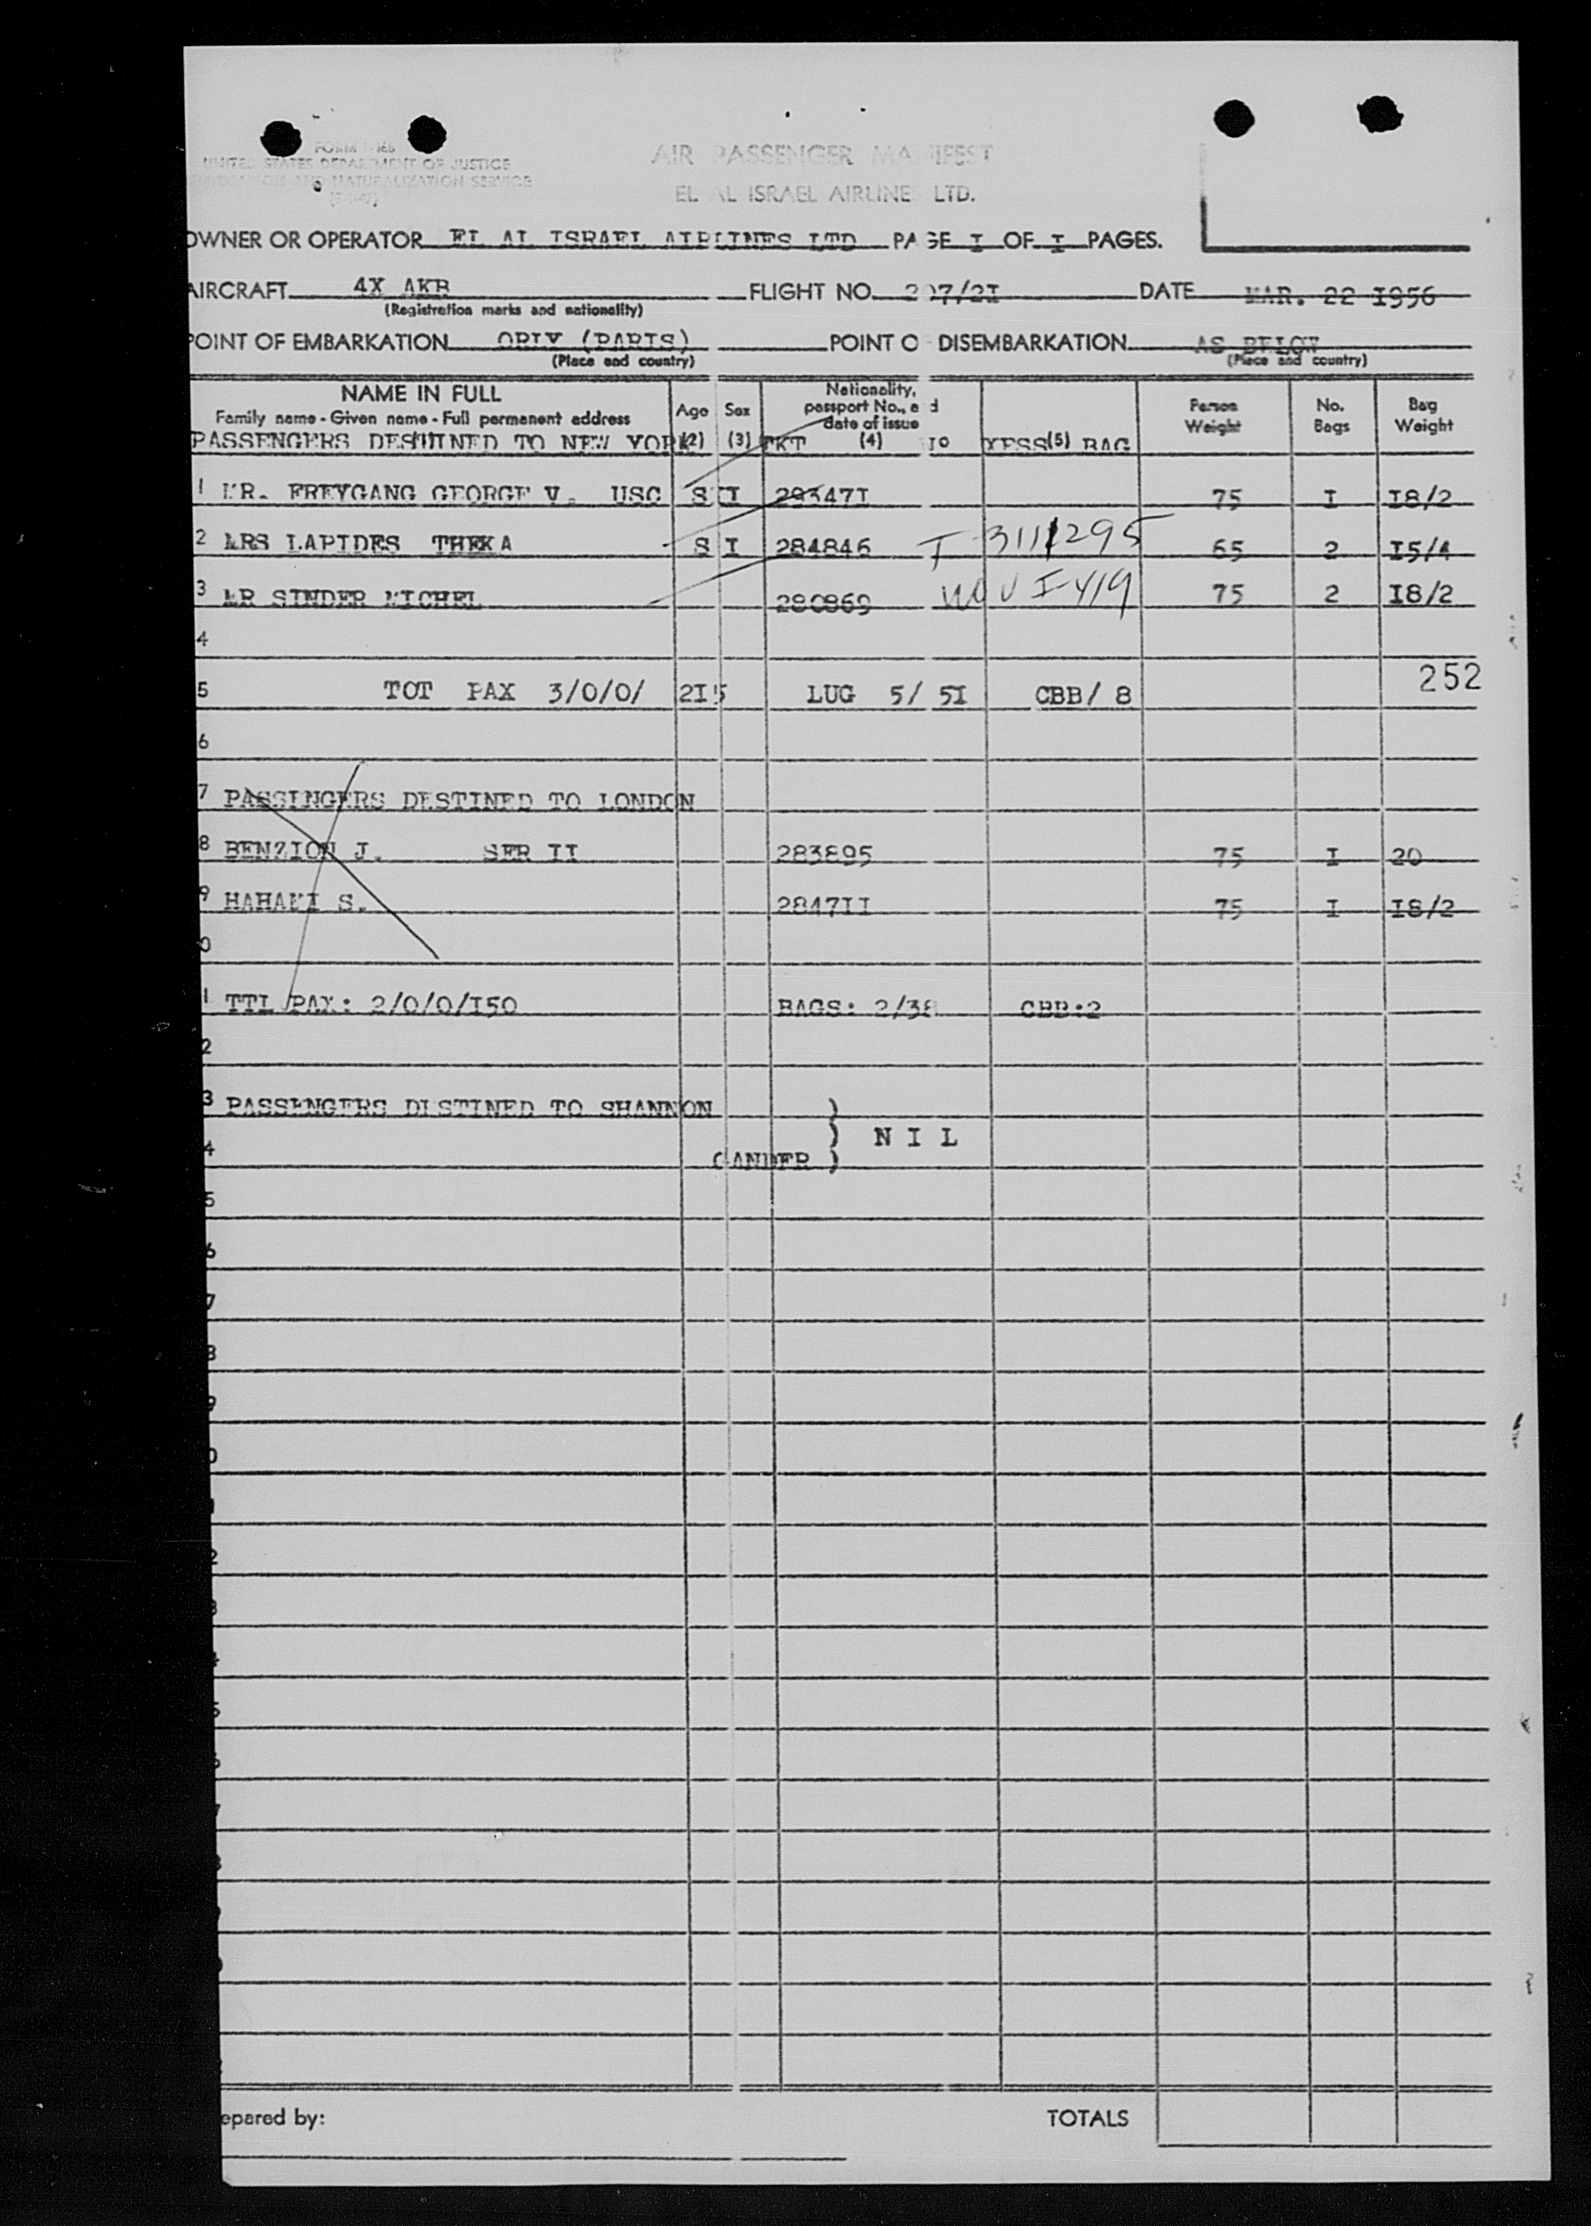 FORM I-466
UNITED STATES DEPARTMENT OF JUSTICE
AND NATURALIZATION SERVICE
AIR PASSENGER MANIFEST
EL AL ISRAEL AIRLINE LTD.
OWNER OR OPERATOR EL AL ISRAEL AIRLINES LTD PAGE I OF I PAGES.
AIRCRAFT 4X AKB FLIGHT NO. 207/2I DATE MAR. 22 I956
(Registration marks and nationality)
POINT OF EMBARKATION ORLY (PARIS) POINT O DISEMBARKATION AS BELOW
(Place and country) (Place and country)
NAME IN FULL
Family name - Given name - Full permanent address
Age Sex
Nationality,
passport No., a d
date of issue
Person
Weight
No.
Bags
Bag
Weight
PASSENGERS DESTINED TO NEW YORK (2) (3) TKT (4) No XESS (5) BAG
1 MR. FREYGANG GEORGE V. USC S I 29347I 75 I I8/2
2 MRS LAPIDES THEKA S I 284846 I-3111295 65 2 I5/4
3 MR SINDER MICHEL 280869 I-419 75 2 I8/2
4
5 TOT PAX 3/0/0/ 2I5 LUG 5/ 5I CBB/ 8 252
6
7 PASSINGERS DESTINED TO LONDON
8 BENZION J. SER II 283895 75 I 20
9 HAHAMI S. 2847II 75 I I8/2
0
1 TTL PAX: 2/0/0/I50 BAGS: 2/38 CBB:2
2
3 PASSENGERS DESTINED TO SHANNON )
) N I L
4 GANDER )
5
6
7
8
9
0
1
2
3
4
5
epared by: TOTALS